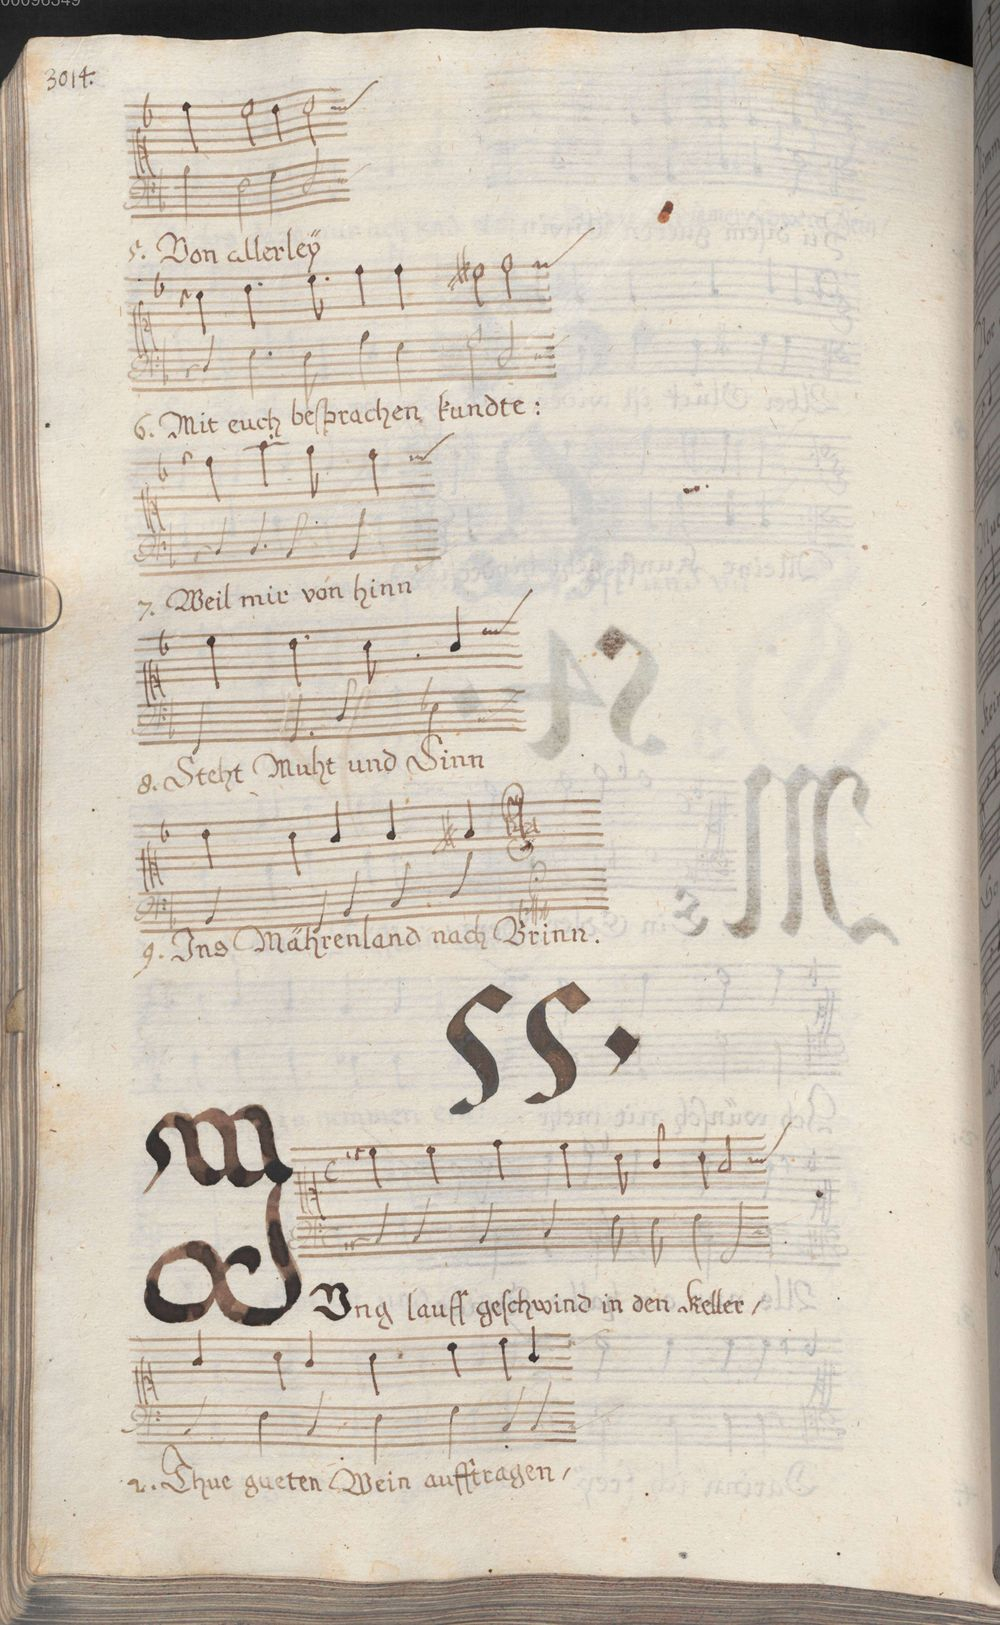 3014.
5. Von allerleÿ
6. Mit euch besprachen kundte:
7. Weil mir von hinn
8. Steht Muht und Sinn
9. Ins Mährenland nach Brinn.
55.
JUng lauff geschwind in den Keller/
2. Thue gueten Wein aufftragen/